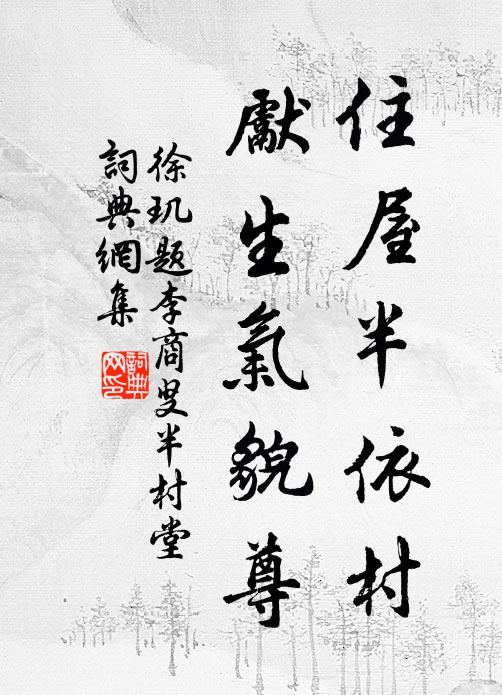 住屋半依村
獻生氣貌尊
徐玑題李商叟半村堂
詞典網集
詞典
网印